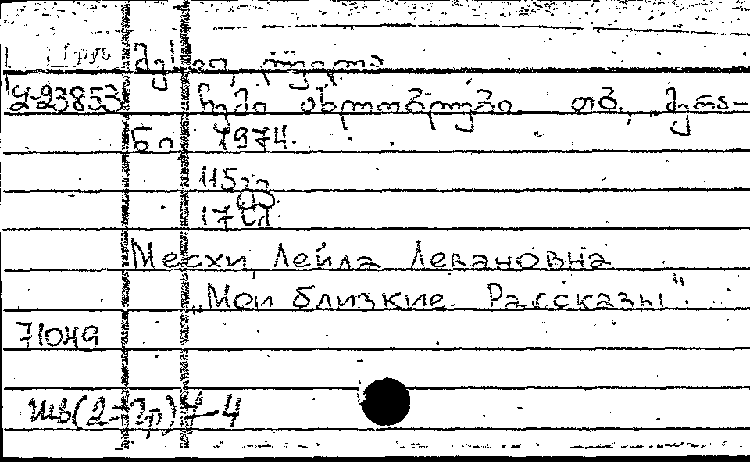 1 груз
მესხი, ლეილა
У-23853 ჩემი ახლობლები. თბ., მერა-
ნი 1974.
115 გვ
17
Месхи, Лейла Левановна
„Мои близкие. Рассказы".
71049
шв(2=Гр)7-4